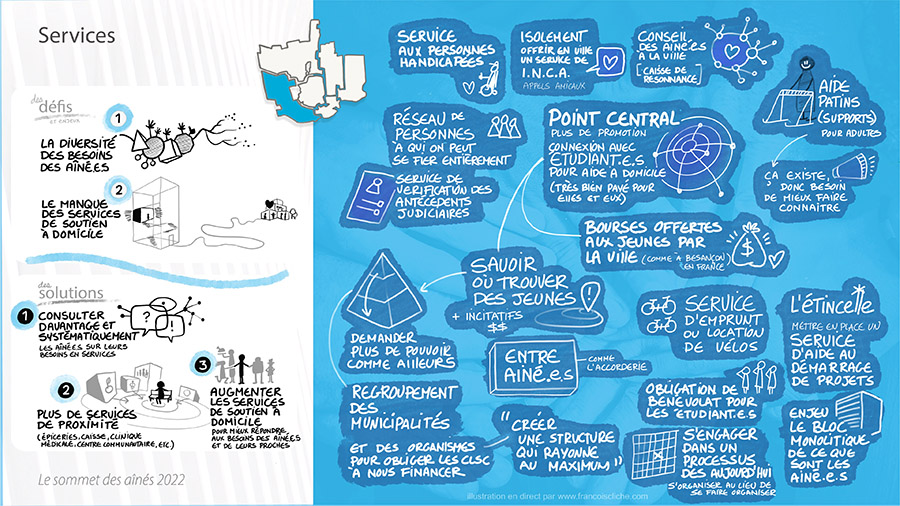 Services
des
défis
ET ENJEUX
1
LA DIVERSITÉ
DES BESOINS
DES AÎNÉ.E.S
2
LE MANQUE
DES SERVICES
DE SOUTIEN
À DOMICILE
des
solutions
1
CONSULTER
DAVANTAGE ET
SYSTÉMATIQUEMENT
LES AÎNÉ.E.S SUR LEURS
BESOINS EN SERVICES
2
PLUS DE SERVICES
DE PROXIMITÉ
(ÉPICERIES, CAISSE, CLINIQUE
MÉDICALE, CENTRE COMMUNAUTAIRE, ETC.)
3
AUGMENTER
LES SERVICES
DE SOUTIEN À
DOMICILE
POUR MIEUX RÉPONDRE,
AUX BESOINS DES AÎNÉ.E.S
ET DE LEURS PROCHES
Le sommet des aînés 2022
SERVICE
AUX PERSONNES
HANDICAPÉES
ISOLEMENT
OFFRIR EN VILLE
UN SERVICE DE
I.N.C.A.
APPELS AMICAUX
CONSEIL
DES AÎNÉ.E.S
À LA VILLE
[CAISSE DE
RÉSONNANCE]
AIDE
PATINS
(SUPPORTS)
POUR ADULTES
ÇA EXISTE,
DONC BESOIN
DE MIEUX FAIRE
CONNAÎTRE
RÉSEAU DE
PERSONNES
À QUI ON PEUT
SE FIER ENTIÈREMENT
SERVICE DE
VÉRIFICATION DES
ANTÉCÉDENTS
JUDICIAIRES
POINT CENTRAL
PLUS DE PROMOTION
CONNEXION AVEC
ÉTUDIANT.E.S
POUR AIDE À DOMICILE
(TRÈS BIEN PAYÉ POUR
ELLES ET EUX)
BOURSES OFFERTES
AUX JEUNES PAR
LA VILLE (COMME À BESANÇON
EN FRANCE)
SAVOIR
OÙ TROUVER
DES JEUNES
+ INCITATIFS
$$
DEMANDER
PLUS DE POUVOIR
COMME AILLEURS
REGROUPEMENT
DES
MUNICIPALITÉS
ET DES ORGANISMES
POUR OBLIGER LES CLSC
À NOUS FINANCER
ENTRE
AINÉ.E.S
COMME
L'ACCORDERIE
"CRÉER
UNE STRUCTURE
QUI RAYONNE
AU MAXIMUM"
SERVICE
D'EMPRUNT OU
LOCATION
DE VÉLOS
OBLIGATION DE
BÉNÉVOLAT POUR
LES ÉTUDIANT.E.S
S'ENGAGER
DANS UN
PROCESSUS
DÈS AUJOURD'HUI
S'ORGANISER AU LIEU DE
SE FAIRE ORGANISER
L'ÉTINCELLE
METTRE EN PLACE UN
SERVICE
D'AIDE AU
DÉMARRAGE
DE PROJETS
ENJEU
LE BLOC
MONOLITIQUE
DE CE QUE
SONT LES
AÎNÉ.E.S
illustration en direct par www.francoiscliche.com